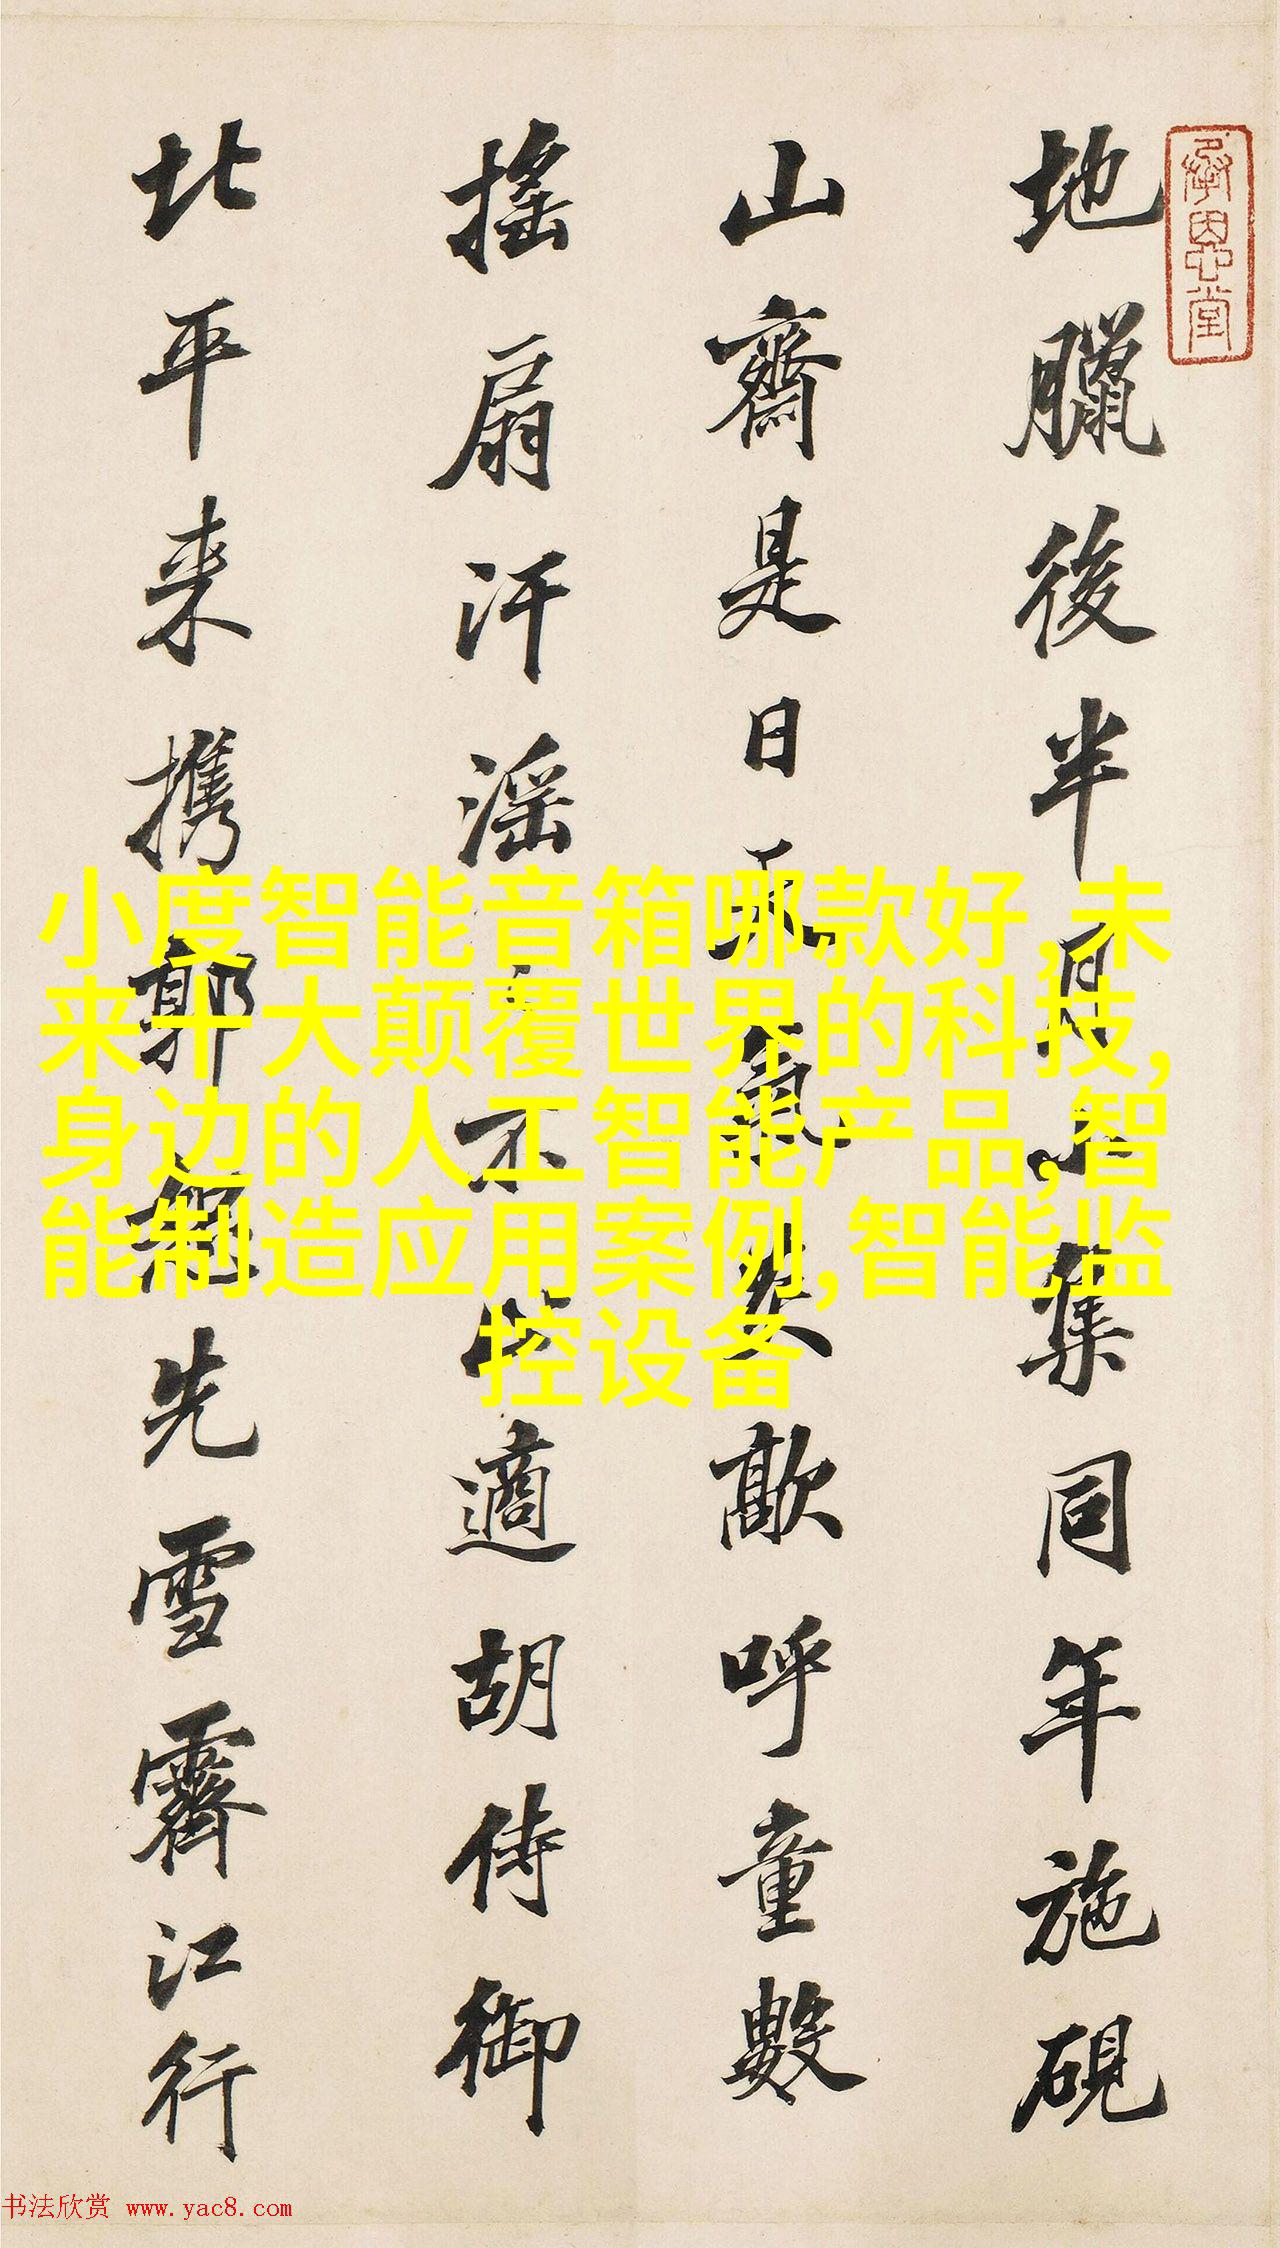 地臘後半月集同年施硯
山齋是日天氣炎歊呼童數
搖扇汗滛不止適胡侍御
北平来攜郭忠恕先雪霽江行
承恩堂
小度智能音箱哪款好,未
来十大颠覆世界的科技,
身边的人工智能产品,智
能制造应用案例,智能监
控设备
书法欣赏 www.yac8.com